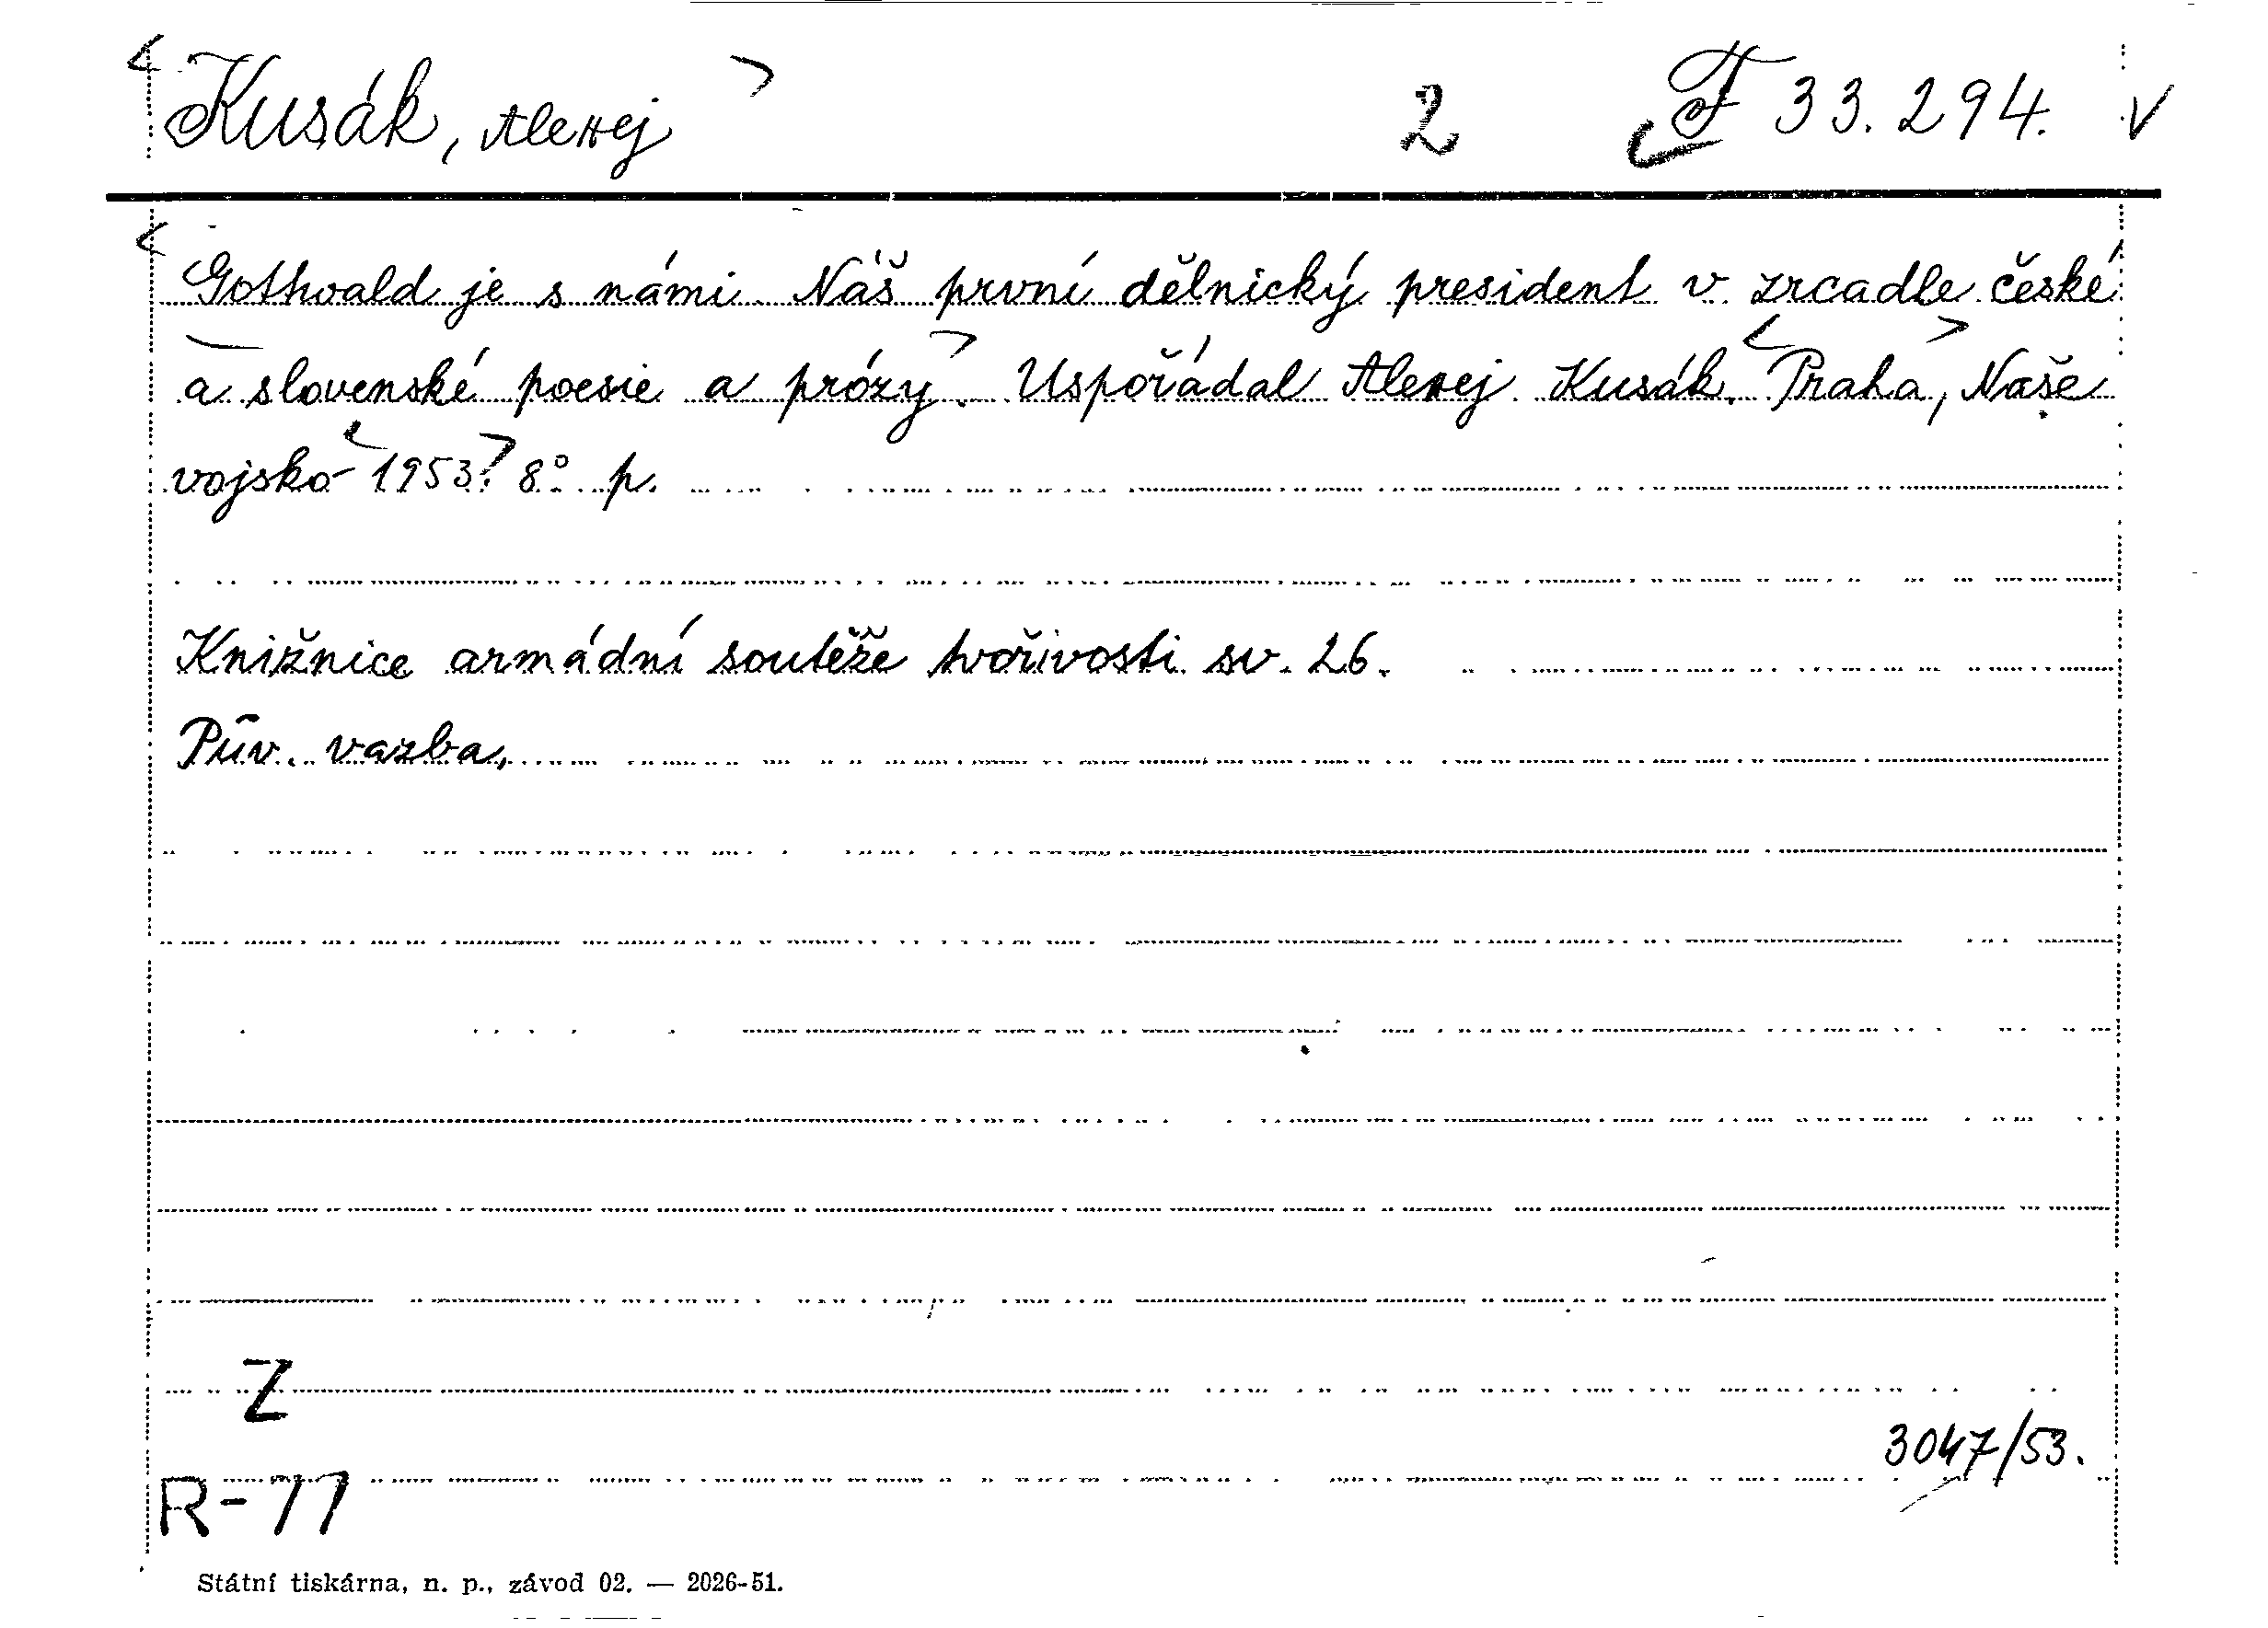 Kusák, Alexej 2 F 33.294. v
Gottwald je s námi. Náš první dělnický president v zrcadle české
a slovenské poesie a prózy. Uspořádal Alexej Kusák. Praha, Naše
vojsko 1953. 8° p.
Knižnice armádní soutěže tvořivosti sv. 26.
Pův. vazba.
Z
3047/53.
R-77
Státní tiskárna, n. p., závod 02. — 2026-51.